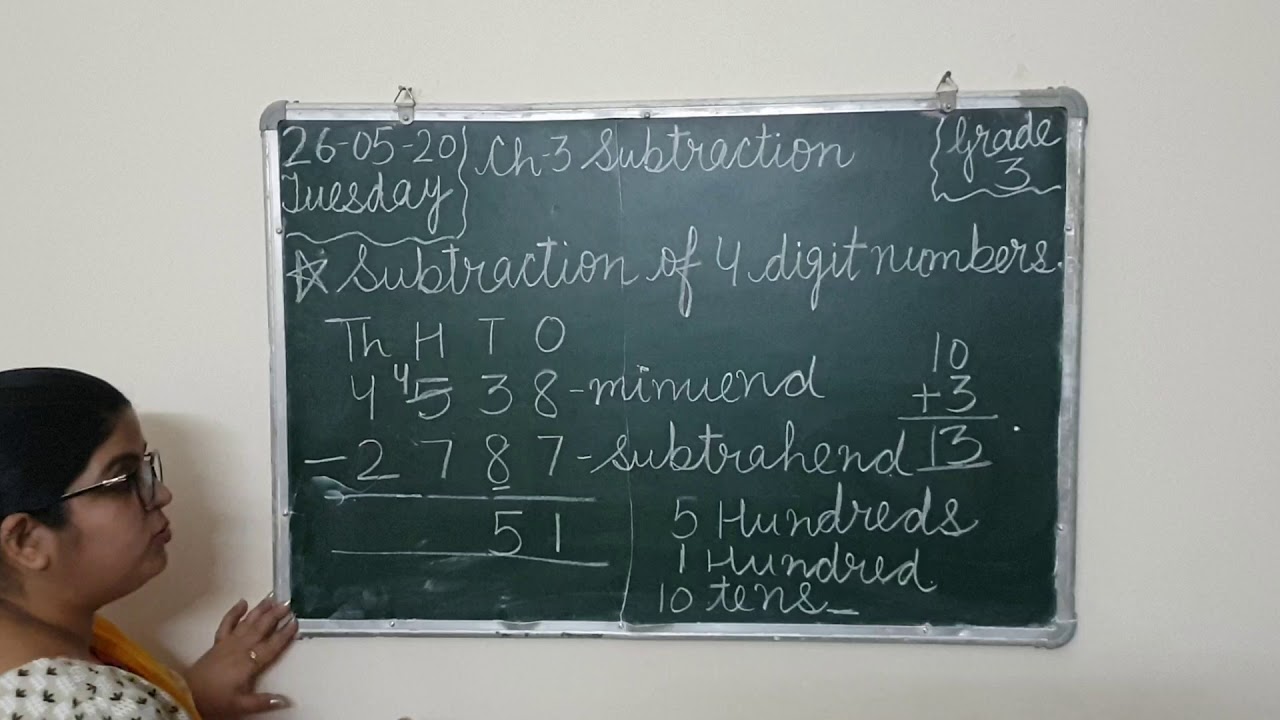 26-05-20
Tuesday
Ch-3 Subtraction
Grade
3
Subtraction of 4 digit numbers.
Th H T O
4 4 5 3 8 - minuend
- 2 7 8 7 - subtrahend
5 1
10
+3
13
5 Hundreds
1 Hundred
10 tens